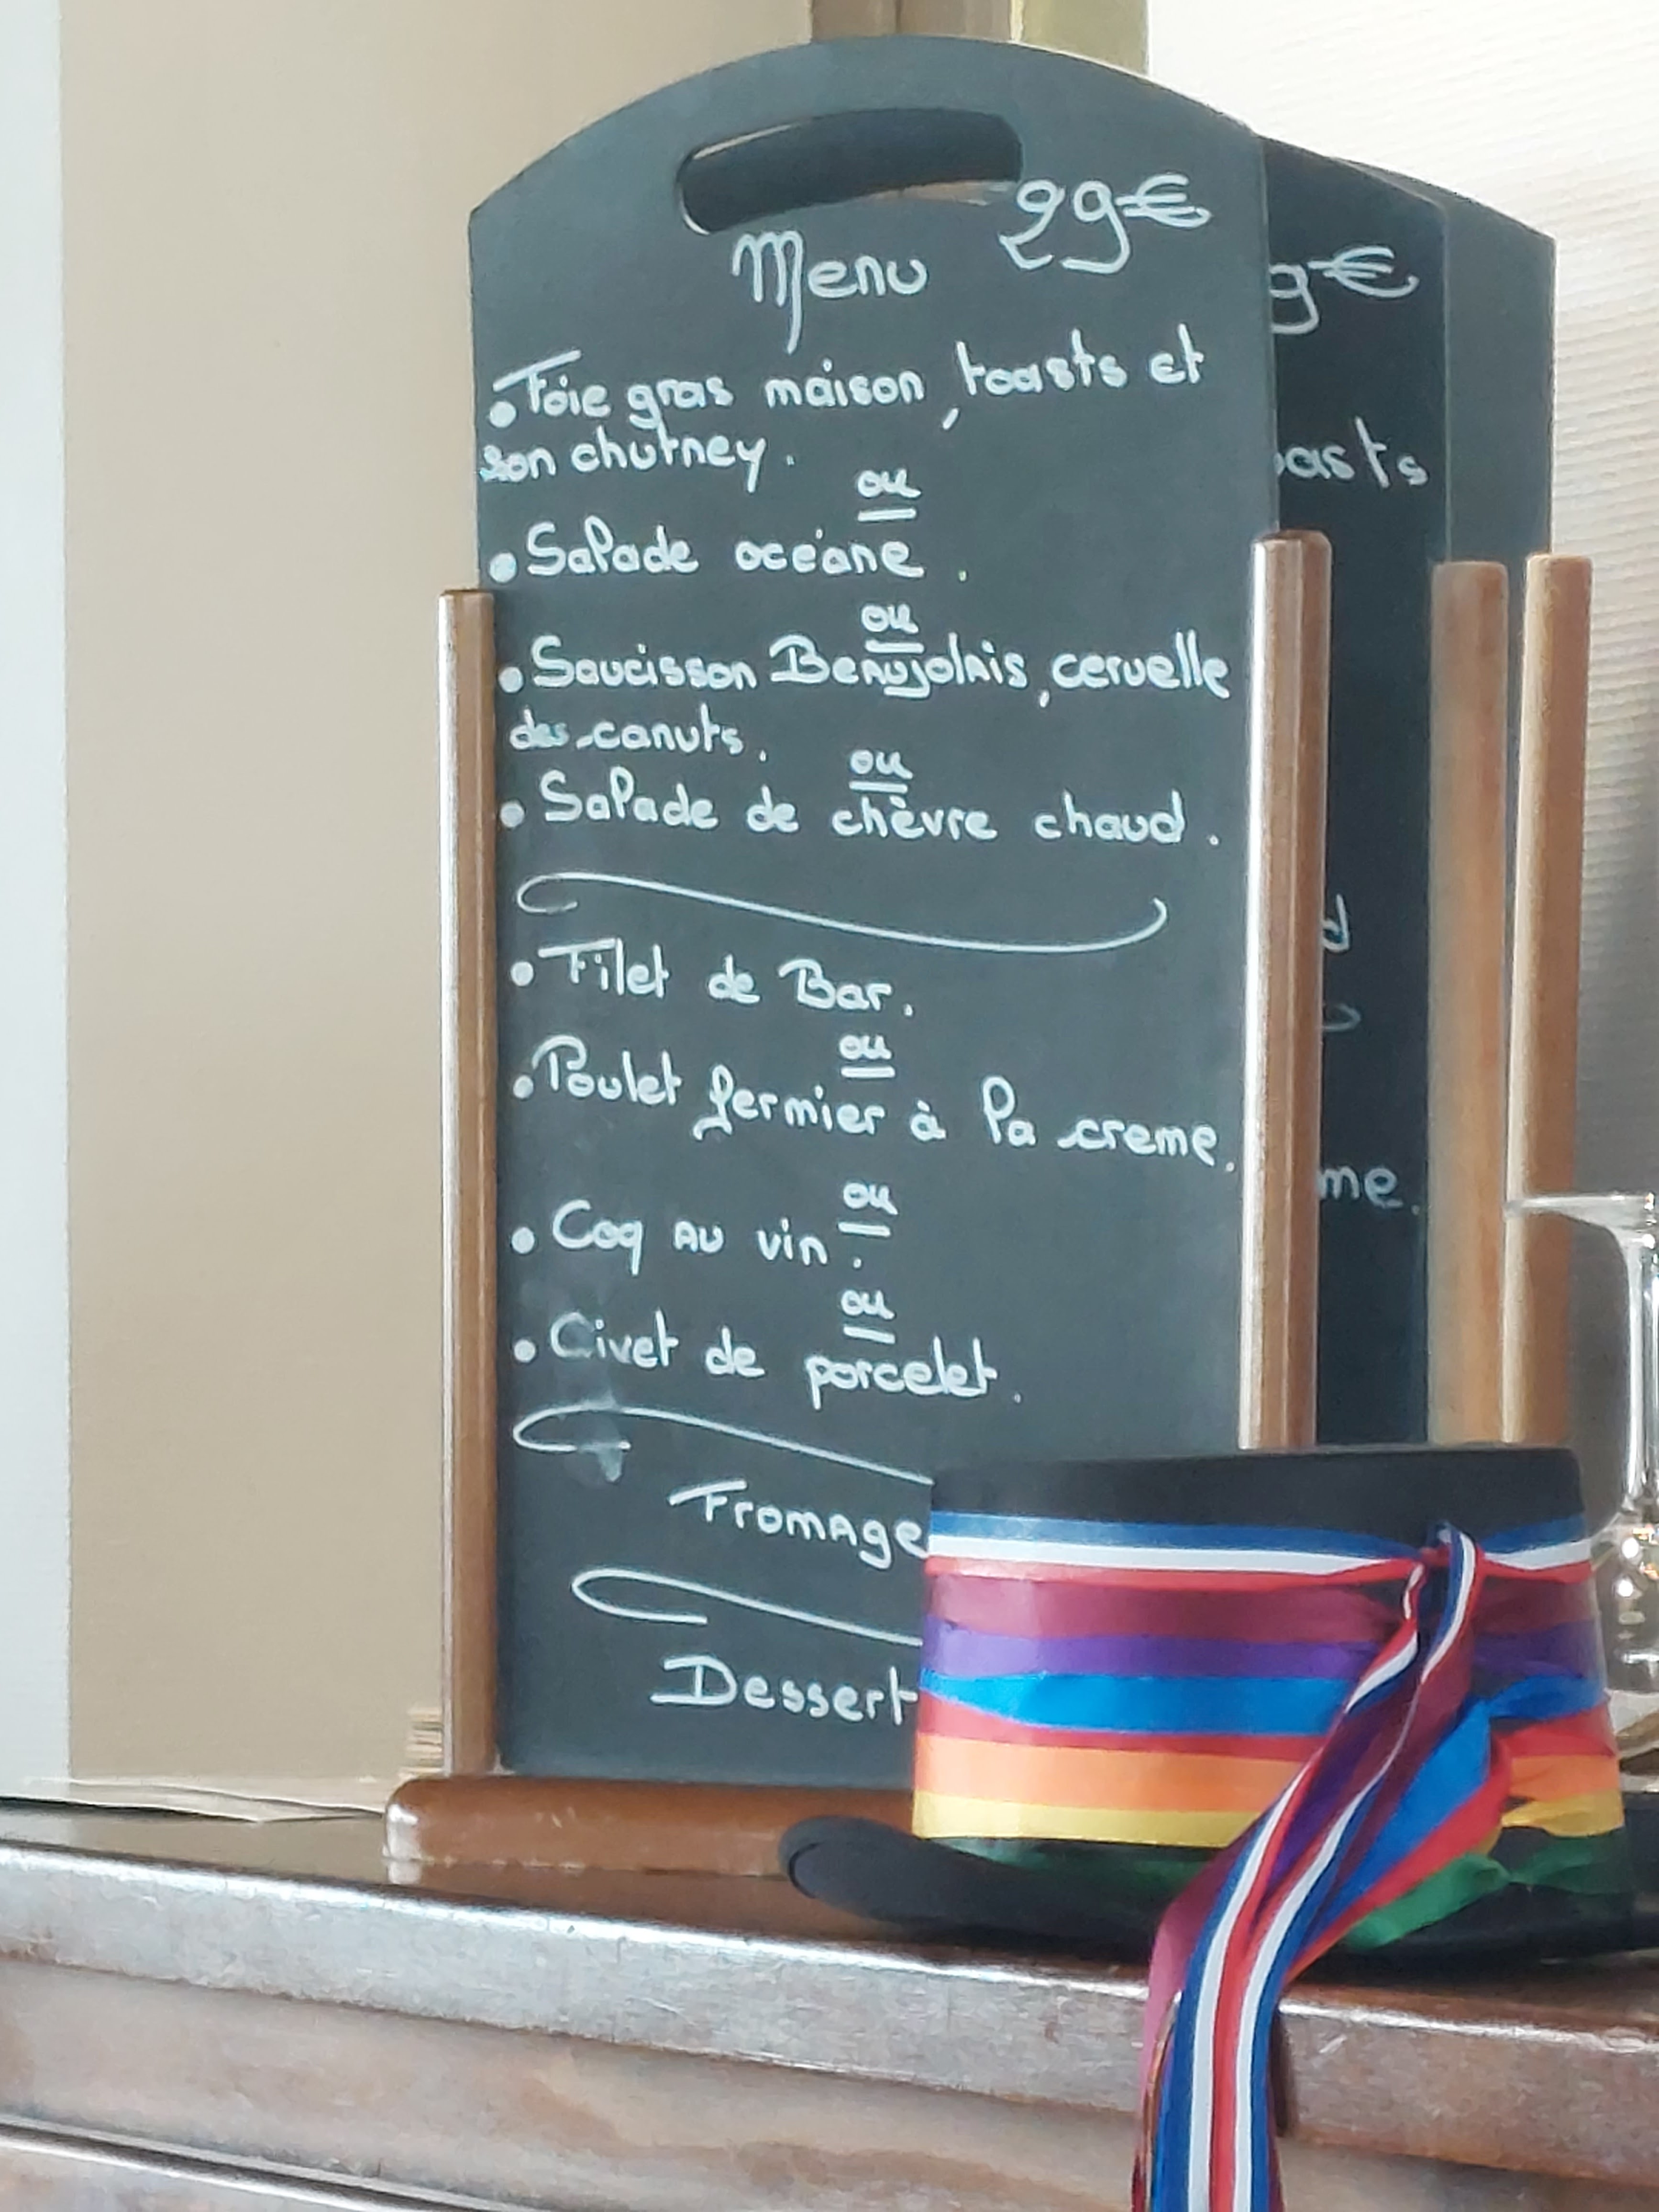 29€
Menu
• Foie gras maison, toasts et
son chutney.
ou
• Salade océane.
ou
• Saucisson Beaujolais, cervelle
des canuts.
ou
• Salade de chèvre chaud.
• Filet de Bar.
ou
• Poulet fermier à la creme.
ou
• Coq au vin.
ou
• Civet de porcelet.
Fromage
Dessert
9€
oasts
d
me.